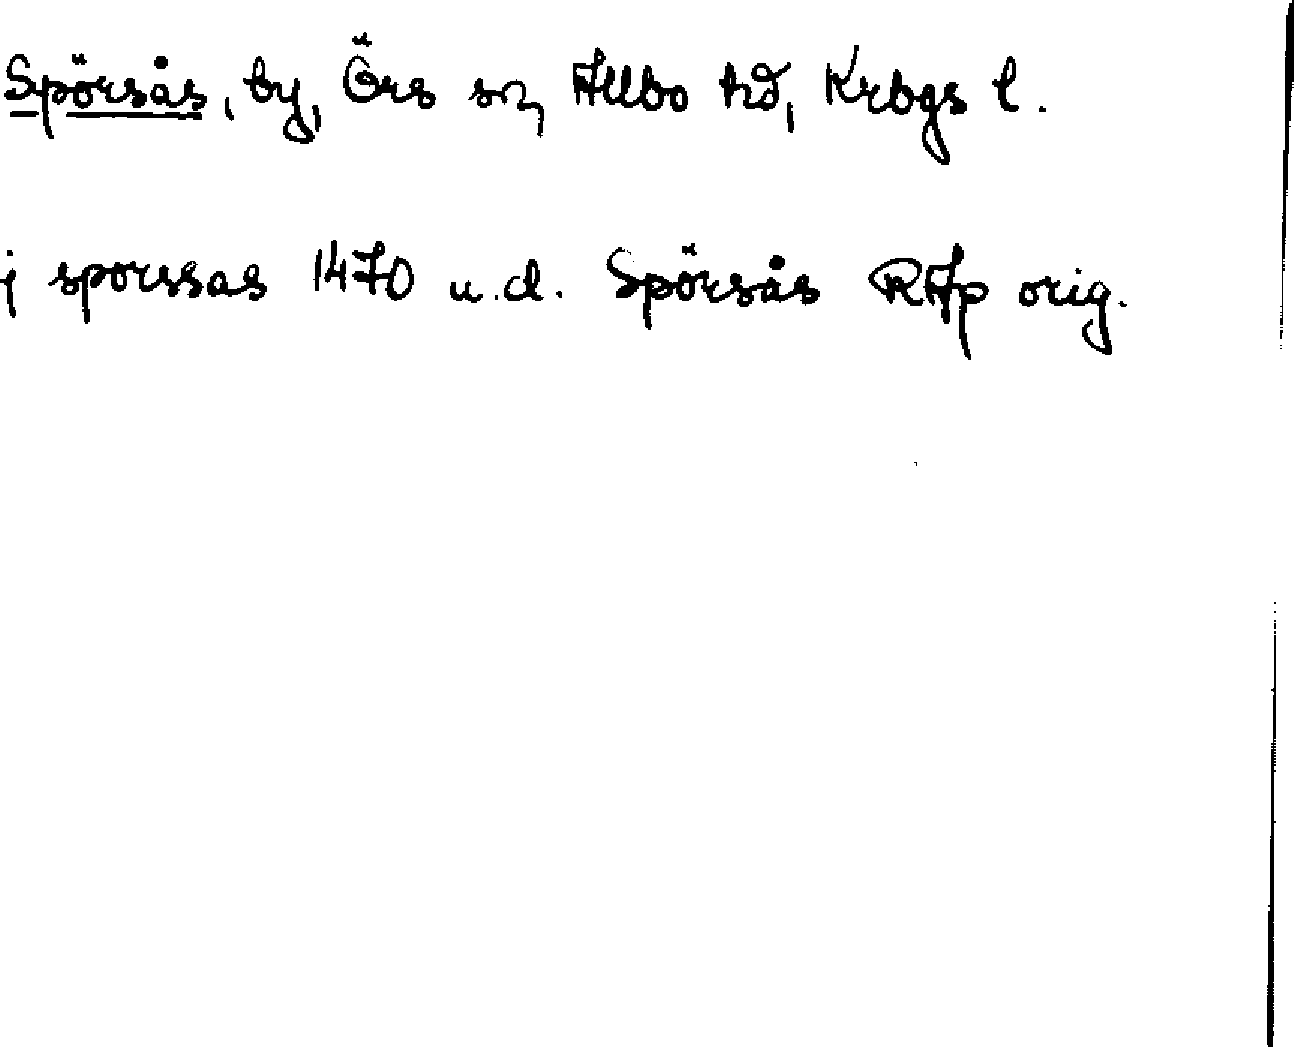 Spörsås, by, Örs sn, Allbo hd, Krbgs l.
j sporssas 1470 u.d. Spörsås RAp orig.